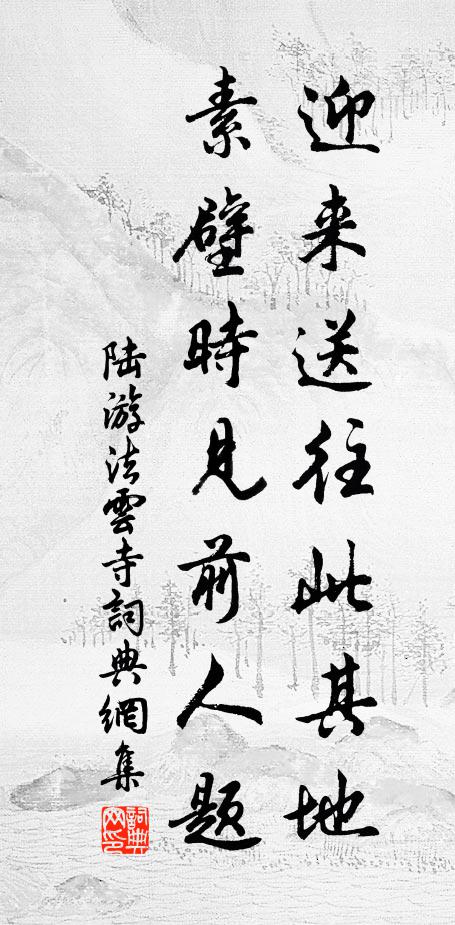 迎来送往此其地
素壁時見前人題
陆游法雲寺詞典網集
詞典網印